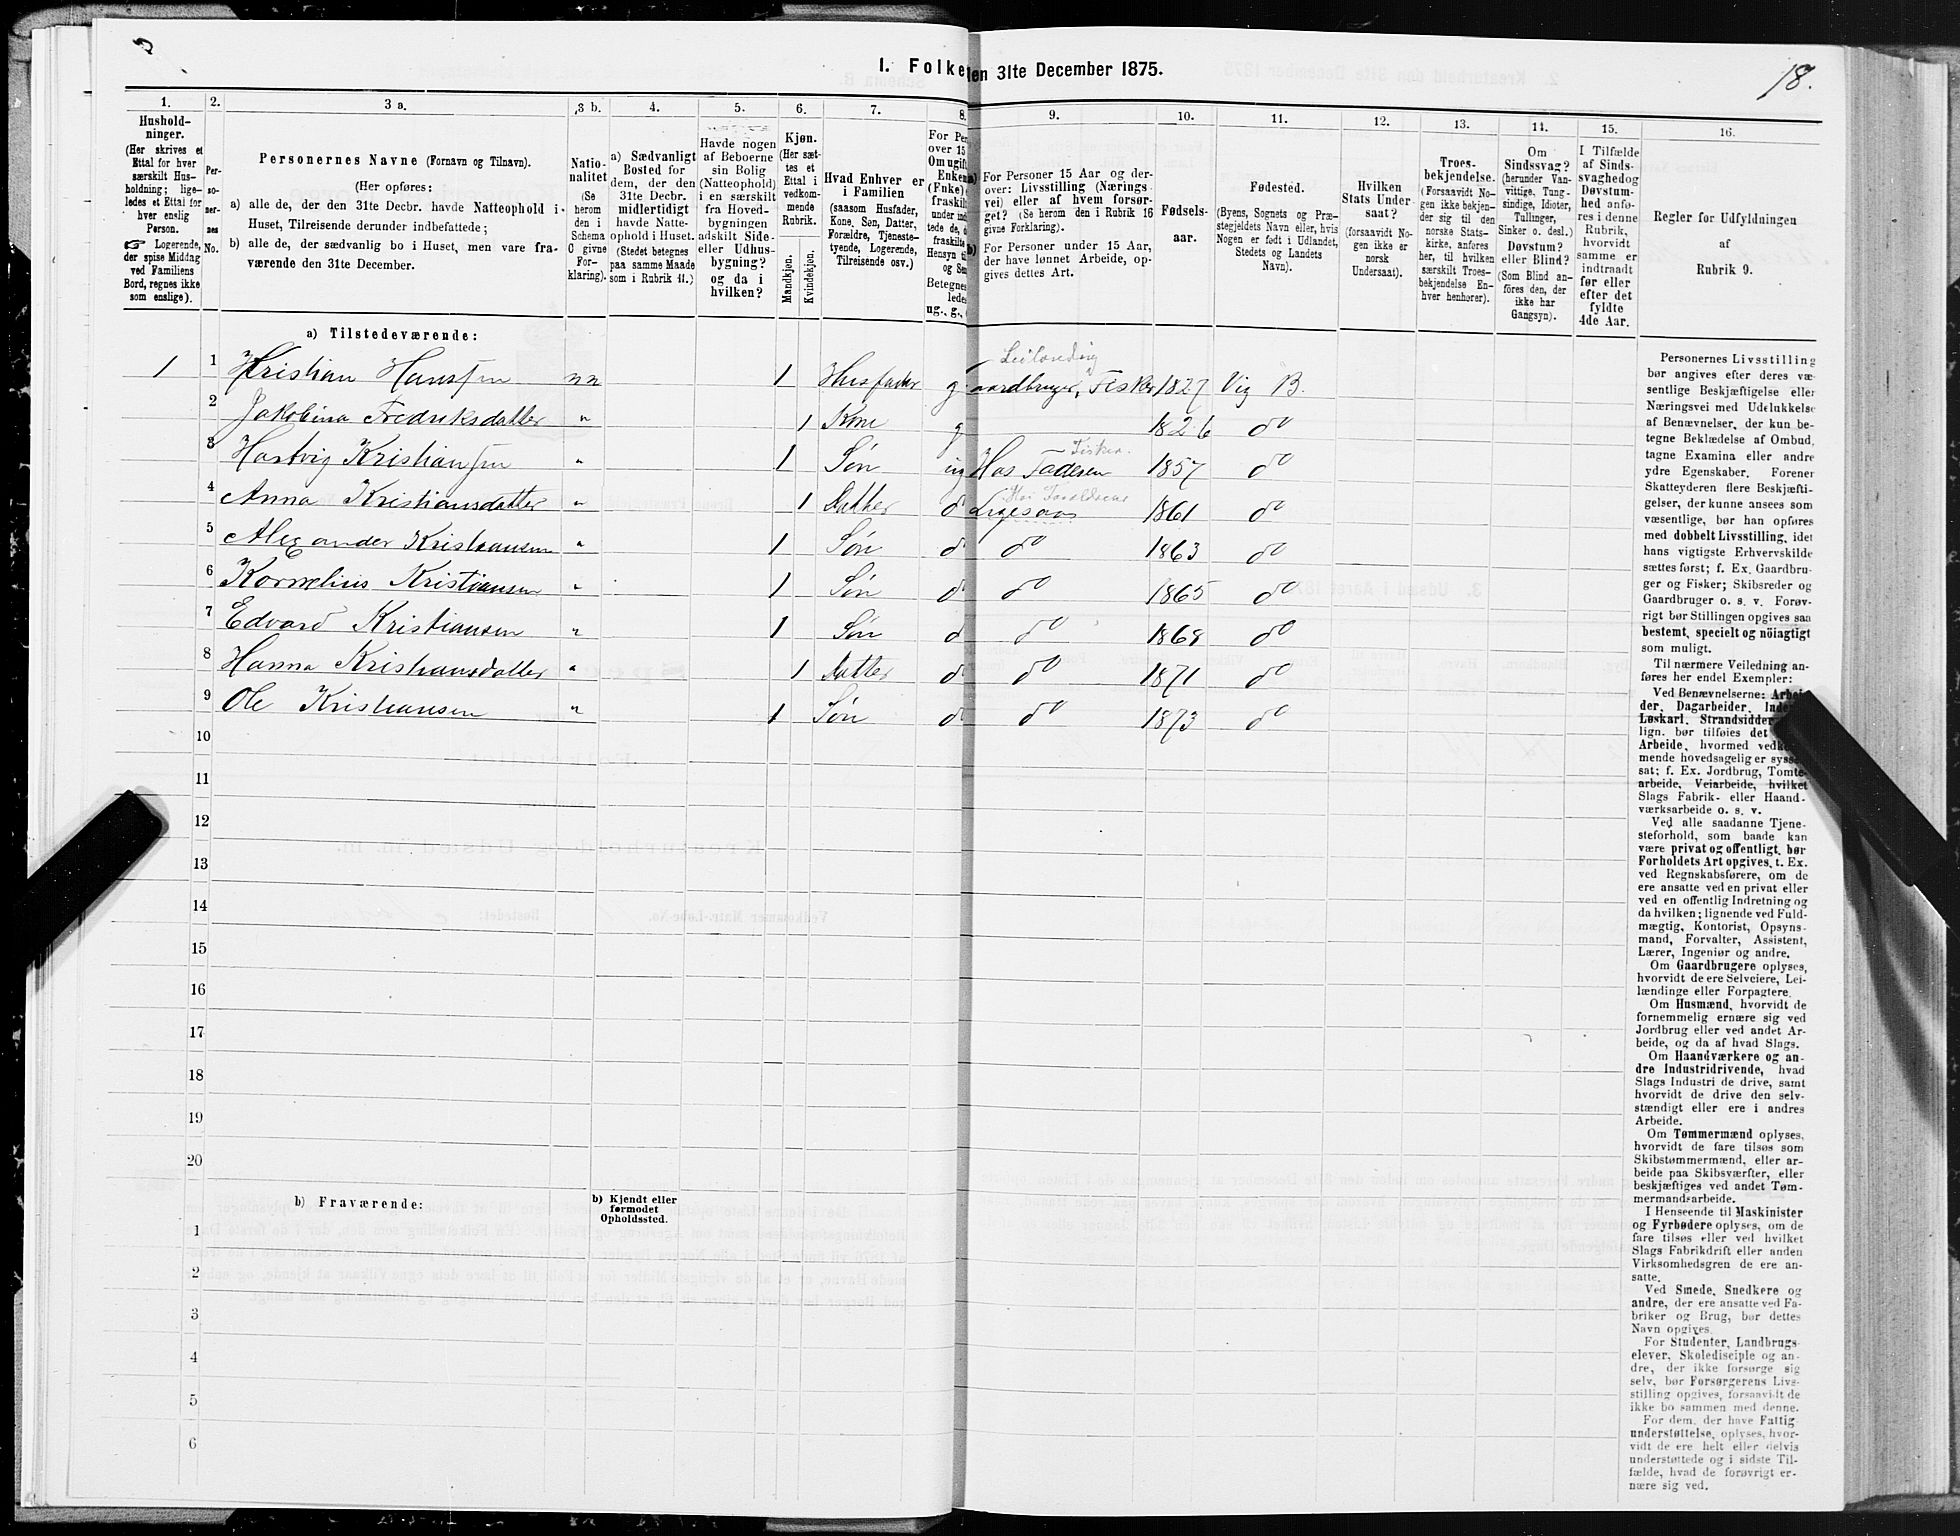 I. Folke
den 31te December 1875.
18.
1.
Hushold-
ninger.
(Her skrives et
Ettal for hver
særskilt Hus-
holdning; lige-
ledes et Ettal for
hver enslig
Person.
☞ Logerende,
der spise Middag
ved Familiens
Bord, regnes ikke
som enslige).
2.
Per-
so-
ner-
nes
No.
3 a.
Personernes Navne (Fornavn og Tilnavn).
(Her opføres:
a) alle de, der den 31te Decbr. havde Natteophold i
Huset, Tilreisende derunder indbefattede;
b) alle de, der sædvanlig bo i Huset, men vare fra-
værende den 31te December.
3 b.
Natio-
nalitet
(Se
herom
den i
Schema
O givne
For-
klaring).
4.
a) Sædvanligt
Bosted for
dem, der den
31te Decbr.
midlertidigt
havde Natte-
ophold i Huset.
(Stedet betegnes
paa samme Maade
som i Rubrik 11.)
5.
Havde nogen
af Beboerne
sin Bolig
(Natteophold)
i en særskilt
fra Hoved-
bygningen
adskilt Side-
eller Udhus-
bygning?
og da i
hvilken?
6.
Kjøn.
(Her sæt-
tes et
Ettal i
vedkom-
mende
Rubrik.
Mandkjøn.
Kvindekjøn.
7.
Hvad Enhver er
i Familien
(saasom Husfader,
Kone, Søn, Datter,
Forældre, Tjeneste-
tyende, Logerende,
Tilreisende osv.)
8.
For Per
over 15
Om ugift
Enkem
(Fnke)
fraskilt
under ind
tede de, d
fraskilte
Hensyn ti
og Se
Betegnes
lede
ug., g.,
9.
a) For Personer 15 Aar og der-
over: Livsstilling (Nærings-
vei) eller af hvem forsør-
get? (Se herom den i Rubrik 16
givne Forklaring).
b) For Personer under 15 Aar,
der have lønnet Arbeide, op-
gives dettes Art.
10.
Fødsels-
aar.
11.
Fødested.
(Byens, Sognets og Præ-
stegjeldets Navn eller, hvis
Nogen er født i Udlandet,
Stedets og Landets
Navn).
12.
Hvilken
Stats Under
saat?
(forsaavidt No-
gen ikke er
norsk
Undersaat).
13.
Troes-
bekjendelse.
(Forsaavidt No-
gen ikke bekjen-
der sig til den
norske Stats-
kirke, anføres
her, til hvilken
særskilt Troes-
bekjendelse En-
hver henhører).
14.
Om
Sindssvag?
(herunder Van-
vittige, Tung-
sindige, Idioter,
Tullinger,
Sinker o. desl.)
Døvstum?
eller Blind?
(Som Blind an-
føres den, der
ikke har
Gangsyn).
15.
I Tilfælde
af Sinds-
svaghed og
Døvstum-
hed anfø-
res i denne
Rubrik,
hvorvidt
samme er
indtraadt
før eller
efter det
fyldte
4de Aar.
16.
Regler for Udfyldningen
af
Rubrik 9.
a) Tilstedeværende:
Leilending
1 1 Kristian Hanssen nn 1 Husfader g Gaardbruger, Fisker 1827 Vig B.
2 Jakobina Fredriksdatter " 1 Kone g 1826 do
Fisker
3 Hartvig Kristianssen " 1 Søn ug Hos Faderen 1857 do
Hos Forældrene
4 Anna Kristiansdatter " 1 Datter d Ligesaa 1861 do
5 Alexander Kristiansen " 1 Søn do do 1863 do
6 Kornelius Kristiansen " 1 Søn do do 1865 do
7 Edvard Kristiansen " 1 Søn d do 1868 do
8 Hanna Kristiansdatter " 1 Datter do do 1871 do
9 Ole Kristiansen " 1 Søn do do 1873 do
10
11
12
13
14
15
16
17
18
19
20
b) Fraværende:
b) Kjendt eller
formodet
Opholdssted.
1
2
3
4
5
6
Personernes Livsstilling
bør angives efter deres væ-
sentlige Beskjæftigelse eller
Næringsvei med Udelukkelse
af Benævnelser, der kun be-
tegne Beklædelse af Ombud,
tagne Examina eller andre
ydre Egenskaber. Forener
Skatteyderen flere Beskjæfti-
gelser, der kunne ansees som
væsentlige, bør han opføres
med dobbelt Livsstilling, idet
hans vigtigste Erhvervskilde
sættes først; f. Ex. Gaardbru-
ger og Fisker; Skibsreder og
Gaardbruger o. s. v. Forøv-
rigt bør Stillingen opgives saa
bestemt, specielt og nöiagtigt
som muligt.
Til nærmere Veiledning an-
føres her endel Exempler:
Ved Benævnelserne: Arbei-
der, Dagarbeider, Inder
Løskarl, Strandsidder
lign. bør tilføies det
Arbeide, hvormed vedkom-
mende hovedsagelig er syssel-
sat; f. Ex. Jordbrug, Tomte-
arbeide, Veiarbeide, hvilket
Slags Fabrik- eller Haand-
værksarbeide o. s. v.
Ved alle saadanne Tjene-
steforhold, som baade kan
være privat og offentligt, bør
Forholdets Art opgives, t. Ex.
ved Regnskabsførere, om de
ere ansatte ved en privat eller
ved en offentlig Indretning og
da hvilken; lignende ved Fuld-
mægtig, Kontorist, Opsyns-
mand, Forvalter, Assistent,
Lærer, Ingeniør og andre.
Om Gaardbrugere oplyses,
hvorvidt de ere Selveiere, Lei-
lændinge eller Forpagtere.
Om Husmænd, hvorvidt de
fornemmelig ernære sig ved
Jordbrug eller ved andet Ar-
beide, og da af hvad Slags.
Om Haandværkere og an-
dre Industridrivende, hvad
Slags Industri de drive, samt
hvorvidt de drive den selv-
stændigt eller ere i andres
Arbeide.
Om Tømmermænd oplyses,
hvorvidt de fare tilsøs som
Skibstømmermænd, eller ar-
beide paa Skibsværfter, eller
beskjæftiges ved andet Tøm-
mermandsarbeide.
I Henseende til Maskinister
og Fyrbødere oplyses, om de
fare tilsøs eller ved hvilket
Slags Fabrikdrift eller anden
Virksomhedsgren de ere an-
satte.
Ved Smede, Snedkere og
andre, der ere ansatte ved Fa-
briker og Brug, bør dettes
Navn opgives.
For Studenter, Landbrugs-
elever, Skoledisciple og an-
dre, der ikke forsørge sig
selv, bør Forsørgerens Livs-
stilling opgives, forsaavidt de
ikke bo sammen med denne.
For dem, der have Fattig-
understøttelse, oplyses, hvor-
vidt de ere helt eller delvis
understøttede og i sidste Til-
fælde, hvad de forøvrigt er-
nære sig ved.